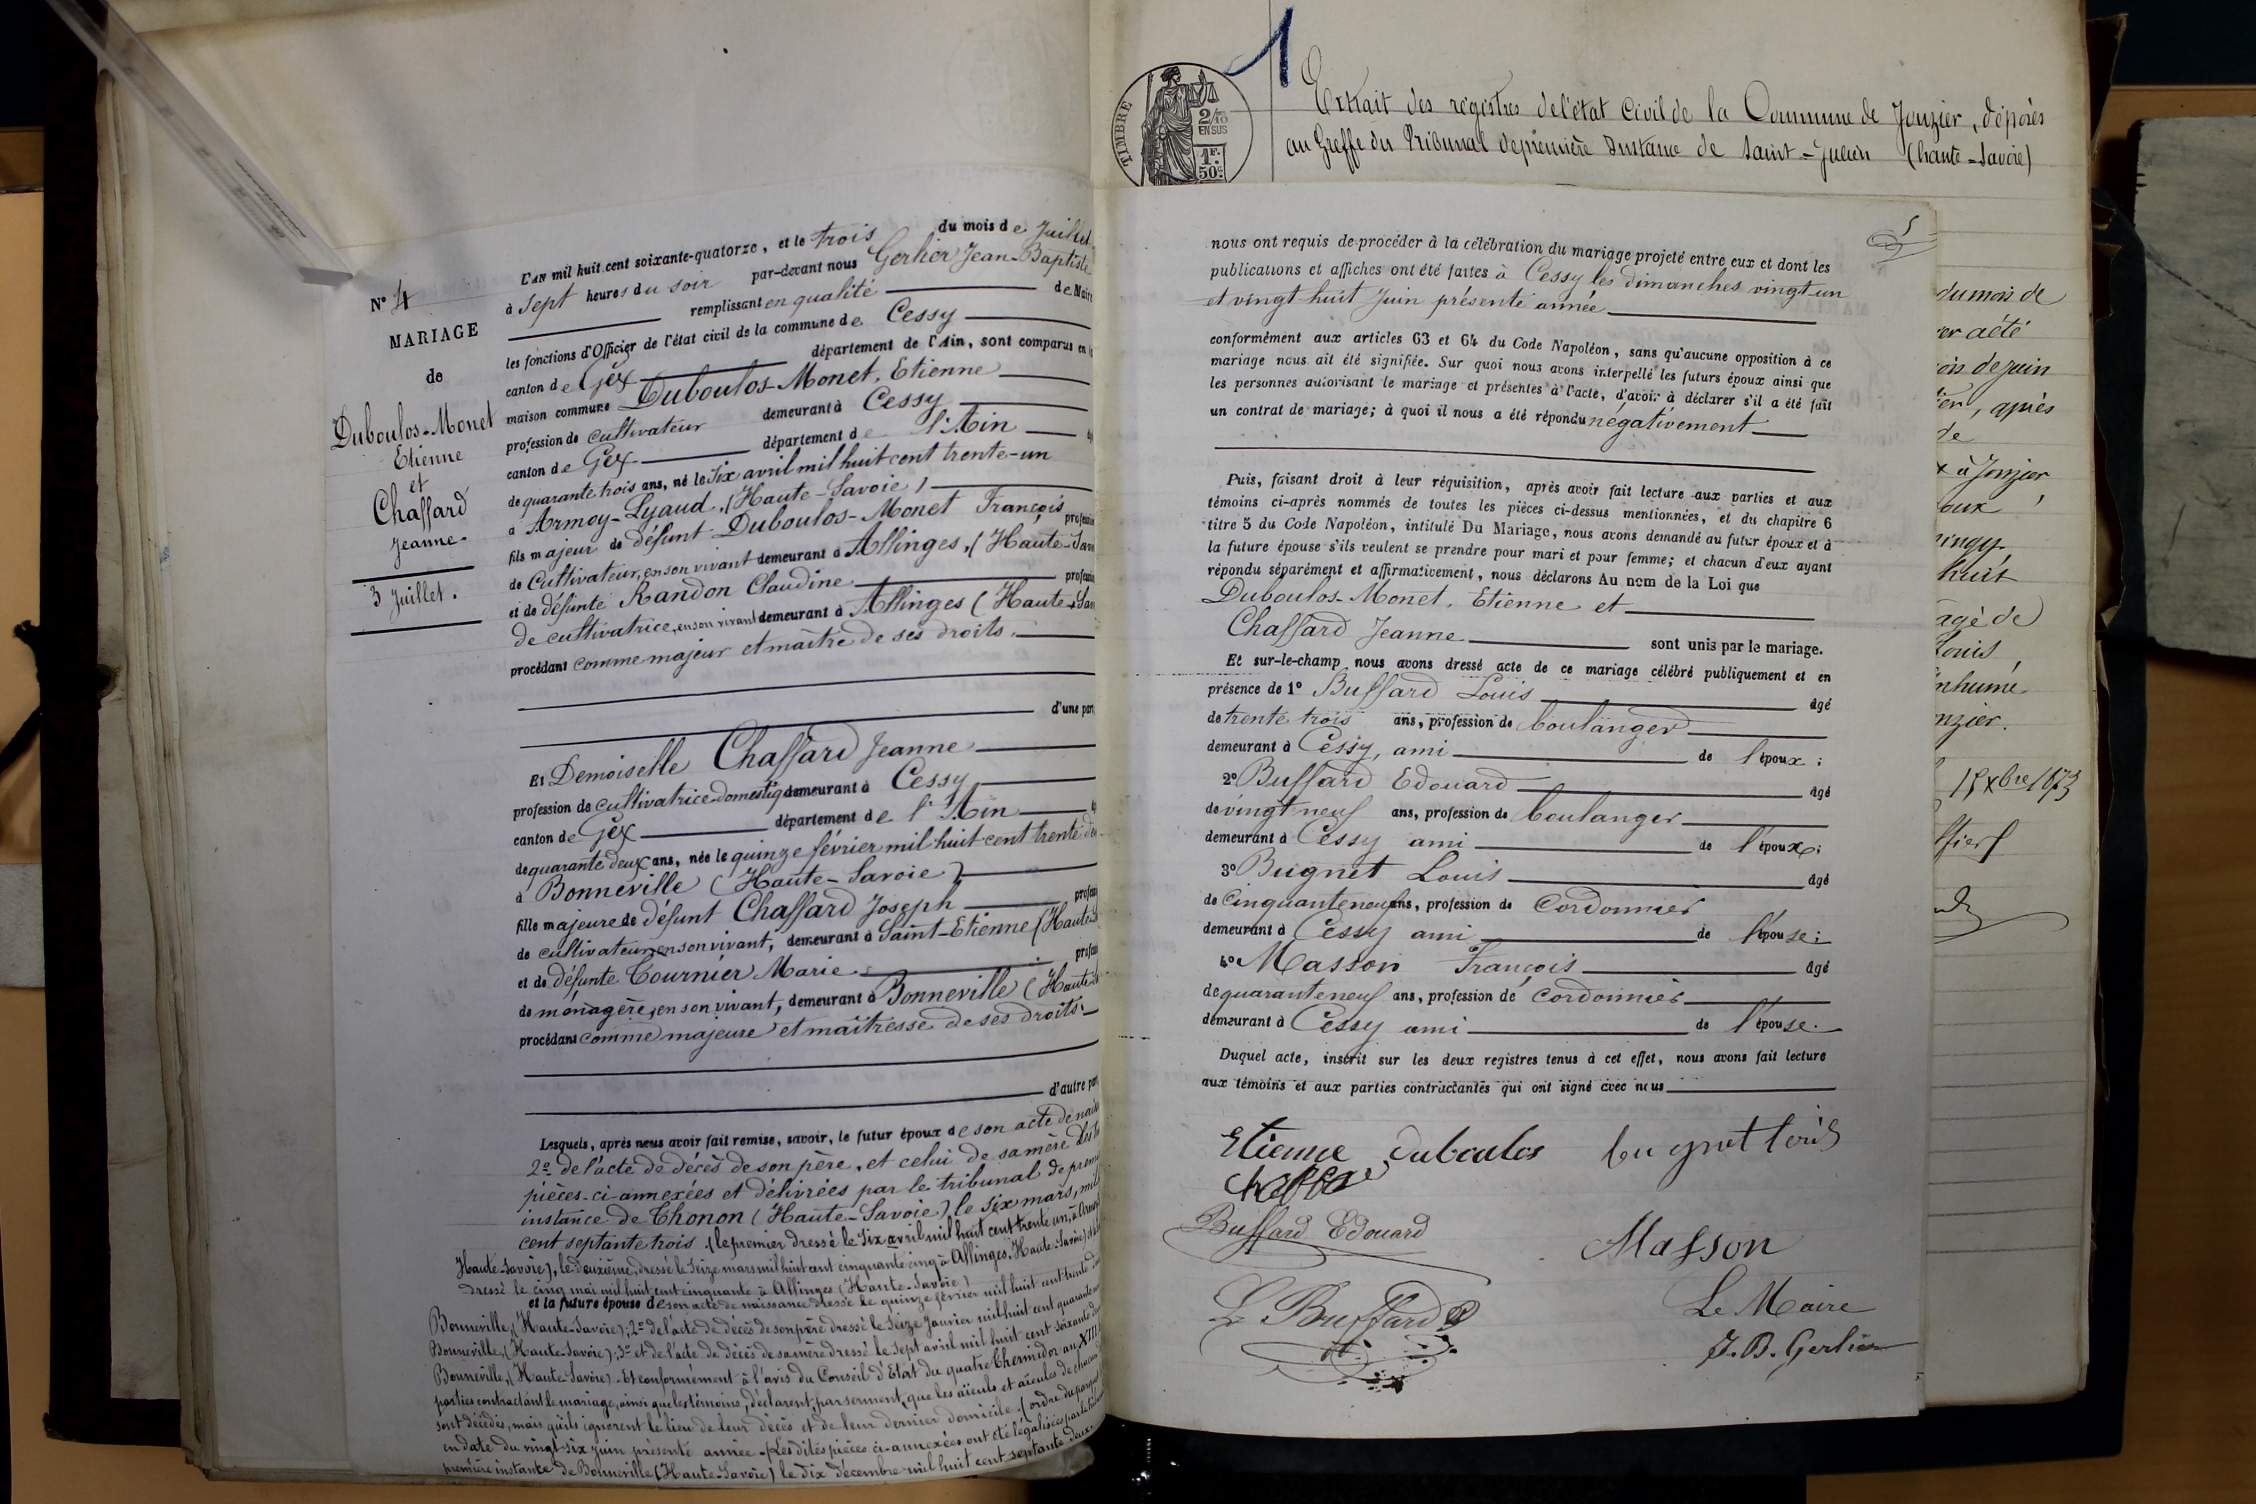 N° 4
MARIAGE
de
Duboulos-Monet
Etienne
et
Chaffard
Jeanne.
3 Juillet.
L'AN mil huit cent soixante-quatorze, et le trois du mois de Juillet
à Sept heures du soir par-devant nous Gerlier Jean-Baptiste
remplissant en qualité de Maire
les fonctions d'Officier de l'état civil de la commune de Cessy
canton de Gex département de l'Ain, sont comparus en la
maison commune Duboulos-Monet, Etienne
profession de cultivateur demeurant à Cessy
canton de Gex département de l'Ain
de quarante trois ans, né le Six avril mil huit cent trente-un
à Armoy-Lyaud, (Haute-Savoie)
fils majeur de défunt Duboulos-Monet François
de Cultivateur, en son vivant demeurant à Allinges, (Haute-Sav
et de défunte Randon Claudine
de cultivatrice, en son vivant demeurant à Allinges (Haute-Sav
procédant comme majeur et maître de ses droits.
d'une part
Et Demoiselle Chaffard Jeanne
profession de cultivatrice domestiq demeurant à Cessy
canton de Gex département de l'Ain
de quarante deux ans, née le quinze février mil huit cent trente de
à Bonneville (Haute-Savoie)
fille majeure de défunt Chaffard Joseph
de cultivateur, en son vivant, demeurant à Saint-Etienne (Haute
et de défunte Tournier Marie
de ménagère, en son vivant, demeurant à Bonneville (Haute
procédant comme majeure et maîtresse de ses droits.
d'autre part
Lesquels, après nous avoir fait remise, savoir, le futur époux de son acte de nais
2° de l'acte de décès de son père, et celui de sa mère
pièces-ci-annexées et délivrées par le tribunal de prem
instance de Thonon (Haute-Savoie), le six mars, mil
cent septante trois (le premier dressé le Six avril mil huit cent trente un, à
Haute-Savoie), le deuxième, dressé le Seize mars mil huit cent cinquante cinq à Allinges, Haute-Savoie)
dressé le cinq mai mil huit cent cinquante à Allinges (Haute-Savoie)
et la future épouse de son acte de naissance dressé le quinze février mil huit cent trente
Bonneville, (Haute-Savoie); 2° de l'acte de décès de son père dressé le Seize Janvier mil huit cent quarante
Bonneville, (Haute-Savoie); 3° et de l'acte de décès de sa mère dressé le Sept avril mil huit cent soixante
Bonneville, (Haute-Savoie). Et conformément à l'avis du Conseil d'Etat du quatre Thermidor an XIII
parties contractant le mariage, ainsi que les témoins, déclarent, par serment, que les aïeuls et aïeules de chacun
sont décédés, mais qu'ils ignorent le lieu de leur décès et de leur dernier domicile. (ordre du parquet
en date du vingt-six juin présente année. Lesdites pièces ci-annexées ont été légalisées par le
première instance de Bonneville (Haute-Savoie) le dix décembre mil huit cent septante deux
1
TIMBRE
2/10
EN SUS
1F.
50c.
Extrait des registres de l'état civil de la Commune de Jonzier, déposés
au Greffe du Tribunal de première Instance de Saint-Julien (haute-Savoie)
5
nous ont requis de procéder à la célébration du mariage projeté entre eux et dont les
publications et affiches ont été faites à Cessy les dimanches vingt un
et vingt huit Juin présente année
conformément aux articles 63 et 64 du Code Napoléon, sans qu'aucune opposition à ce
mariage nous ait été signifiée. Sur quoi nous avons interpellé les futurs époux ainsi que
les personnes autorisant le mariage et présentes à l'acte, d'avoir à déclarer s'il a été fait
un contrat de mariage; à quoi il nous a été répondu négativement
Puis, faisant droit à leur réquisition, après avoir fait lecture aux parties et aux
témoins ci-après nommés de toutes les pièces ci-dessus mentionnées, et du chapitre 6
titre 5 du Code Napoléon, intitulé Du Mariage, nous avons demandé au futur époux et à
la future épouse s'ils veulent se prendre pour mari et pour femme; et chacun d'eux ayant
répondu séparément et affirmativement, nous déclarons Au nom de la Loi que
Duboulos-Monet, Etienne et
Chaffard Jeanne sont unis par le mariage.
Et sur-le-champ nous avons dressé acte de ce mariage célébré publiquement et en
présence de 1° Buffard Louis âgé
de trente trois ans, profession de boulanger
demeurant à Cessy, ami de l'époux;
2° Buffard Edouard âgé
de vingt neuf ans, profession de boulanger
demeurant à Cessy ami de l'époux;
3° Bugnet Louis âgé
de Cinquante neuf ans, profession de Cordonnier
demeurant à Cessy ami de l'épouse;
4° Masson François âgé
de quarante neuf ans, profession de cordonnier
demeurant à Cessy ami de l'épouse.
Duquel acte, inscrit sur les deux registres tenus à cet effet, nous avons fait lecture
aux témoins et aux parties contractantes qui ont signé avec nous
Etienne Duboulos bugnet louis
Buffard Edouard
Masson
L. Buffard
Le Maire
J. B. Gerlier
du mois de
er a été
ois de juin
ier, après
de
x à Jonzier
oux
vingt-
huit
agé de
Louis,
inhumé
nzier.
15 Xbre 1873